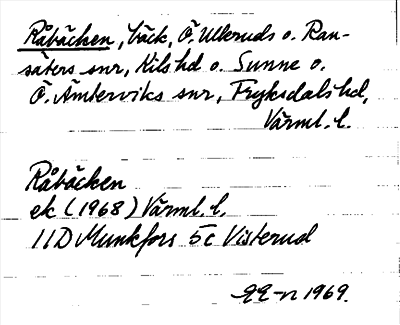 Råbäcken, bäck, Ö. Ulleruds o. Ran-
säters snr, Kils hd o. Sunne o.
Ö. Ämterviks snr, Fryksdals hd,
Värml. l.
Råbäcken
ek (1968) Värml. l.
11D Munkfors 5c Visterud
1969.